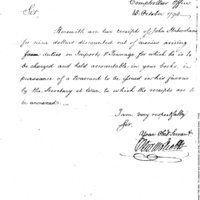 Comptrollers Office
October 179
Sir,
Herewith are two receipts of John Habersham
for nine dollars discounted out of monies arising
from duties on Imports & Tonnage for which he is to
be charged and held accountable in your books, in
pursuance of a Warrant to be issued in his favour
by the Secretary at War, to which the receipts are to
be annexed.
I am very respectfully
Sir,
Your Obed Servant